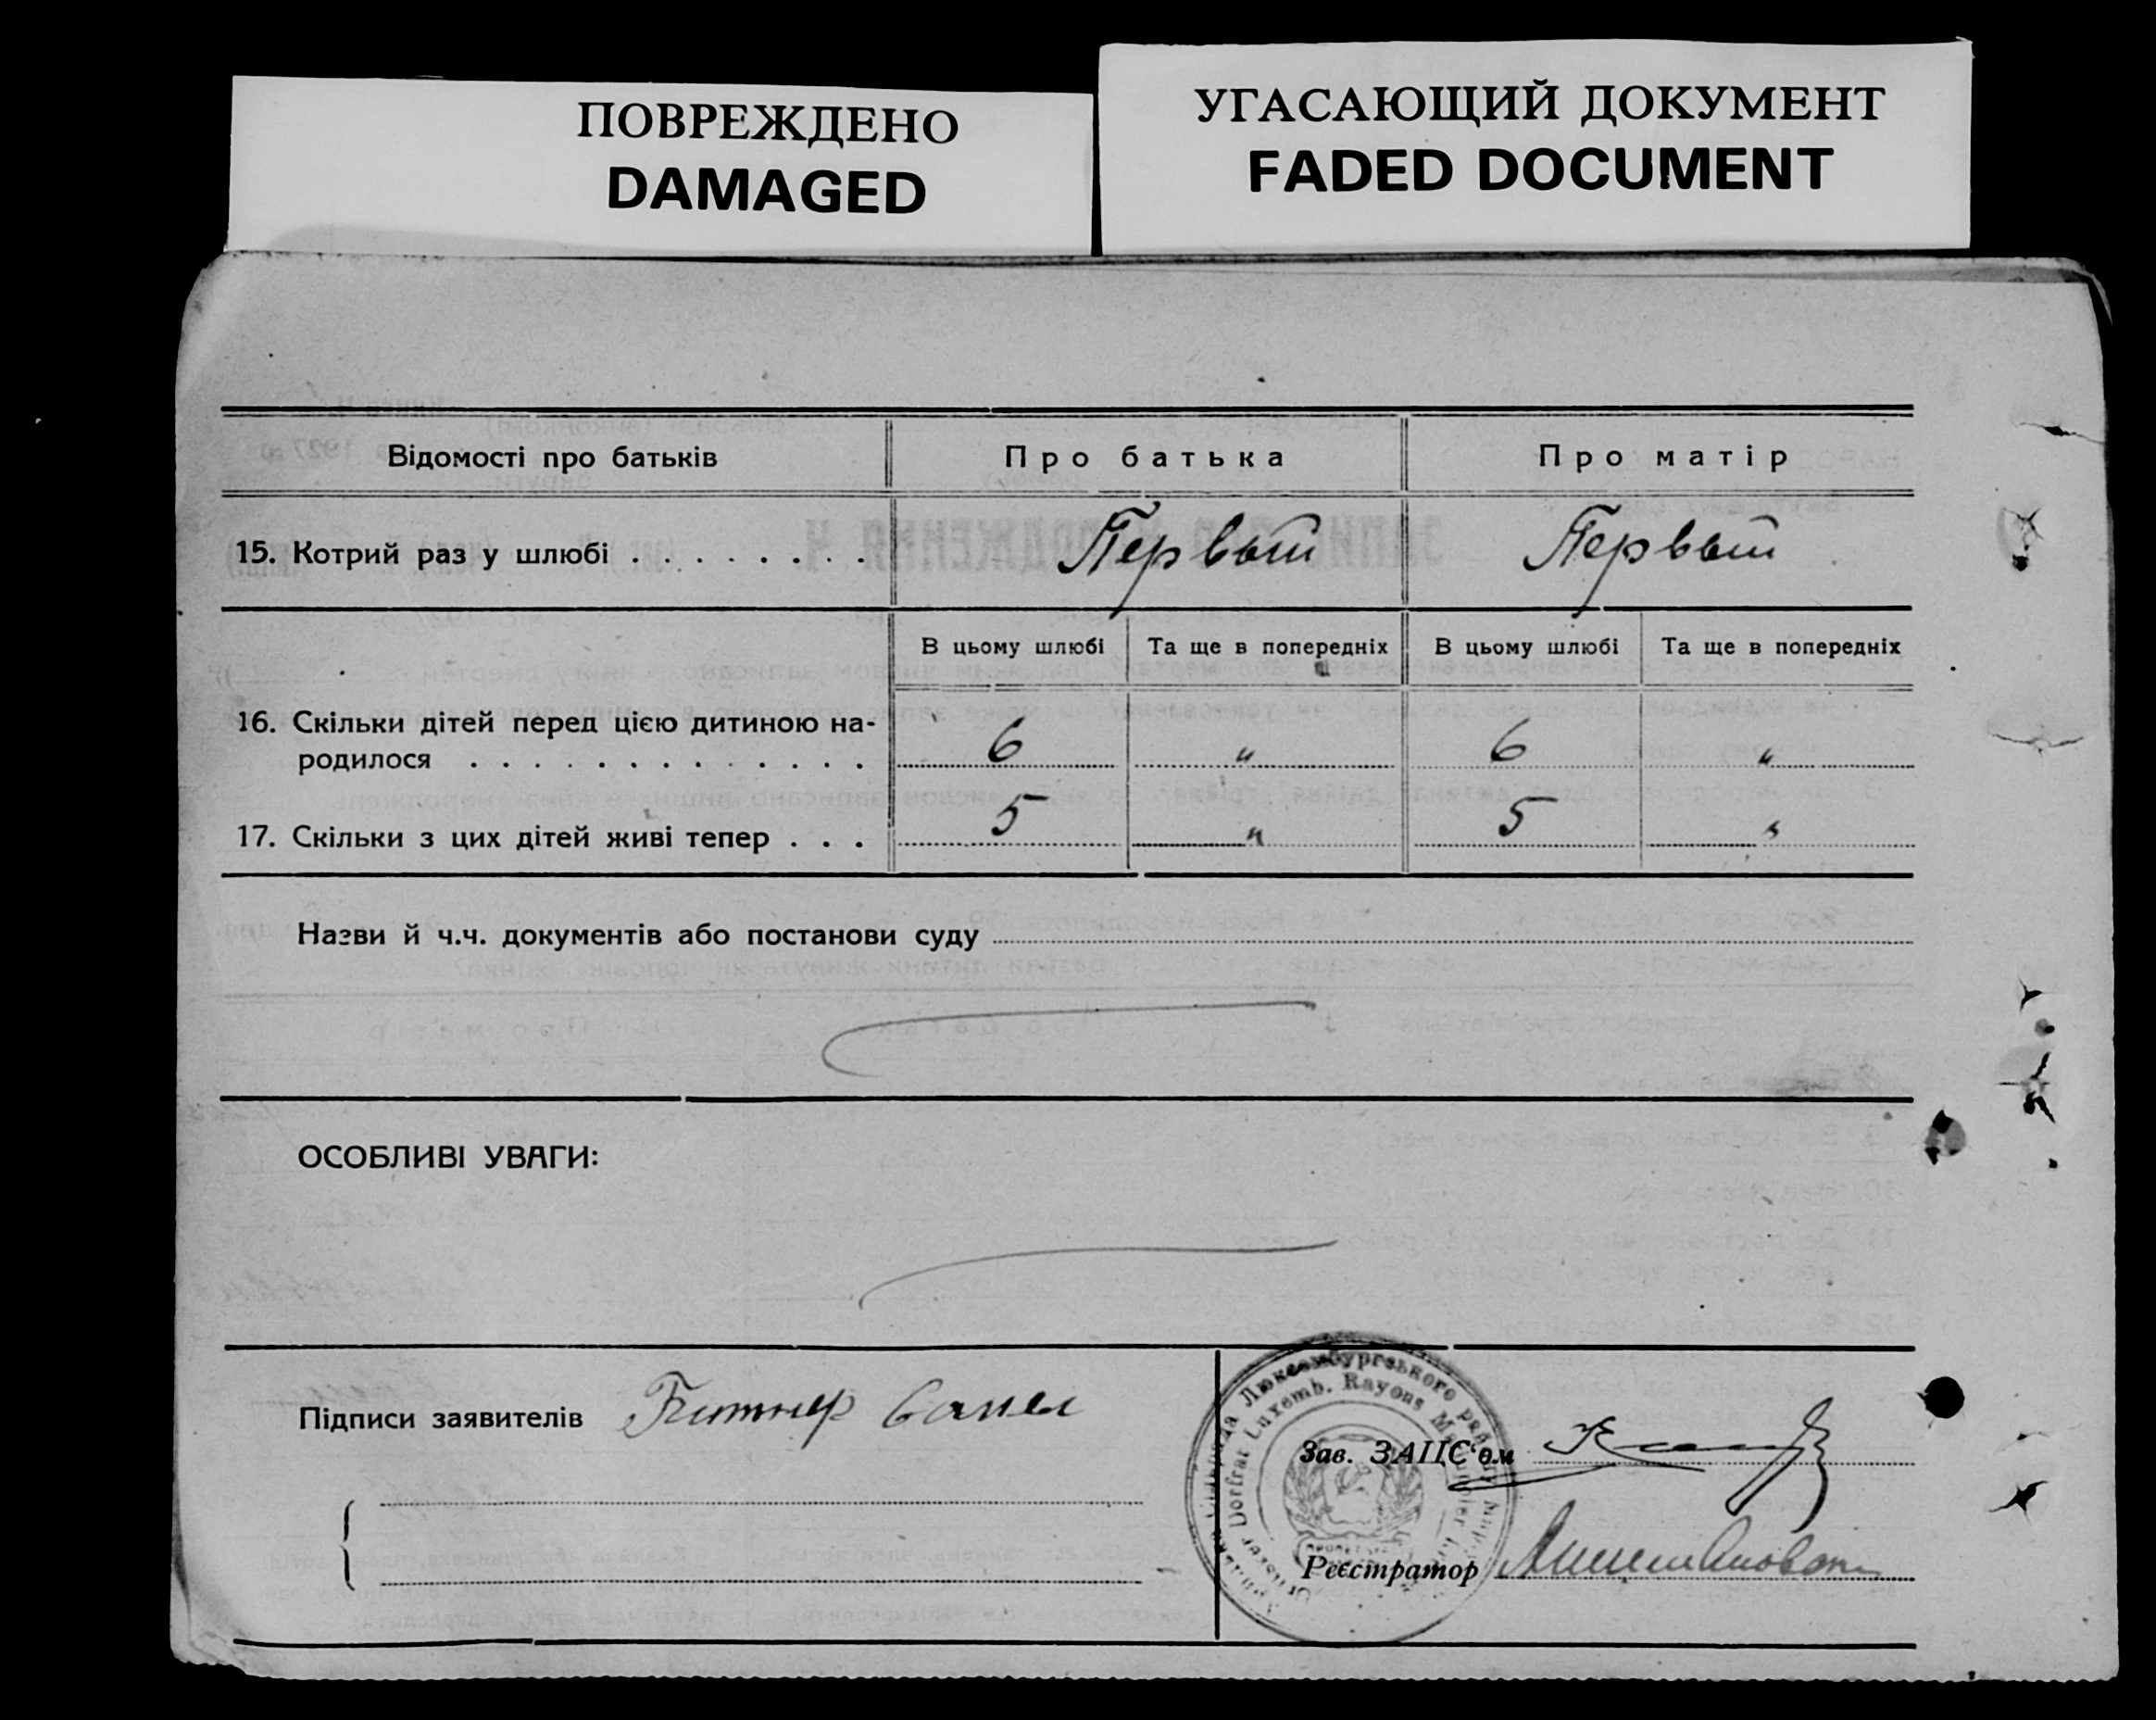 ПОВРЕЖДЕНО
DAMAGED
УГАСАЮЩИЙ ДОКУМЕНТ
FADED DOCUMENT
Відомості про батьків
Про батька
Про матір
15. Котрий раз у шлюбі . . . . . . . .
Первый
Первый
В цьому шлюбі
Та ще в попередніх
В цьому шлюбі
Та ще в попередніх
16. Скільки дітей перед цією дитиною на-
родилося . . . . . . . . . . . . . .
6
"
6
"
17. Скільки з цих дітей живі тепер . . .
5
"
5
"
Назви й ч.ч. документів або постанови суду
ОСОБЛИВІ УВАГИ:
Підписи заявителів
Люксембургського
Luxemb. Rayons
Dorfrat
Зав. ЗАЦС'ом
Реєстратор